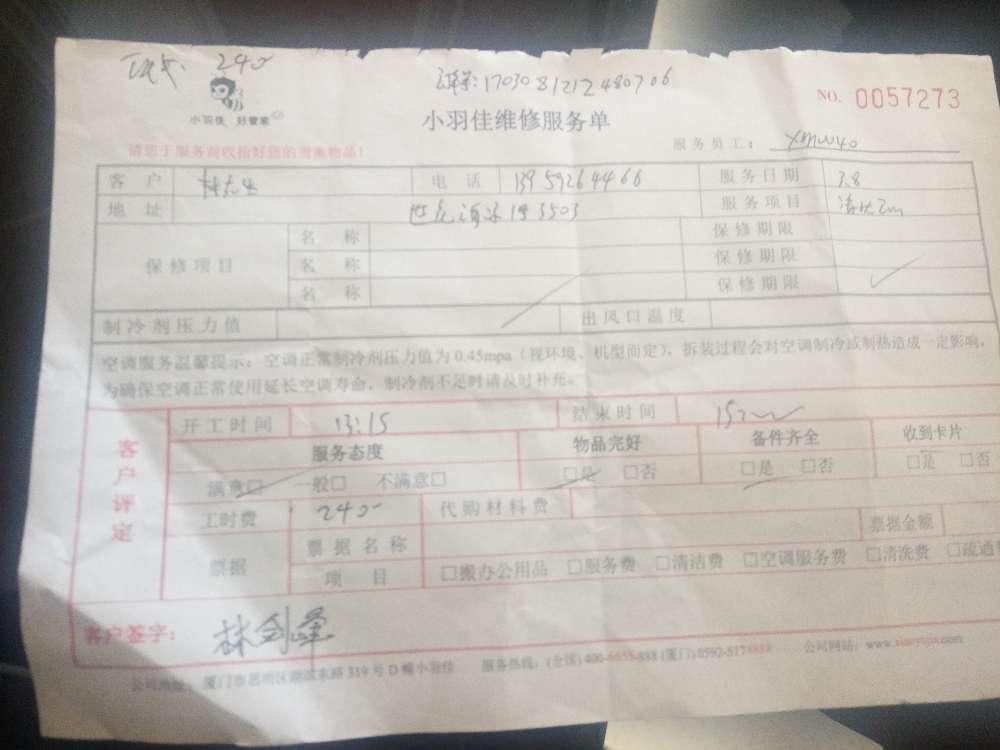 240
1703081212480706
小羽佳 好管家
小羽佳维修服务单
NO. 0057273
请您于服务前收拾好您的贵重物品!
服务员工: XMW40
客户 电话 13959264466 服务日期 3.8
地址 3503 服务项目
保修项目 名称 保修期限
名称 保修期限
名称 保修期限
制冷剂压力值 出风口温度
空调服务温馨提示:空调正常制冷剂压力值为0.45mpa(视环境、机型而定),拆装过程会对空调制冷或制热造成一定影响,
为确保空调正常使用延长空调寿命,制冷剂不足时请及时补充。
客户评定
开工时间 13:15 结束时间
服务态度 物品完好 备件齐全 收到卡片
满意□ 一般□ 不满意□ □是 □否 □是 □否 □是 □否
工时费 240 代购材料费
票据 票据名称 票据金额
项目 □搬办公用品 □服务费 □清洁费 □空调服务费 □清洗费 □疏通费
客户签字: 林剑峰
公司地址:厦门市思明区湖滨东路319号D幢小羽佳 服务热线:(全国)400-6655-888 (厦门)0592-5178888 公司网站:www.xiaoyujia.com